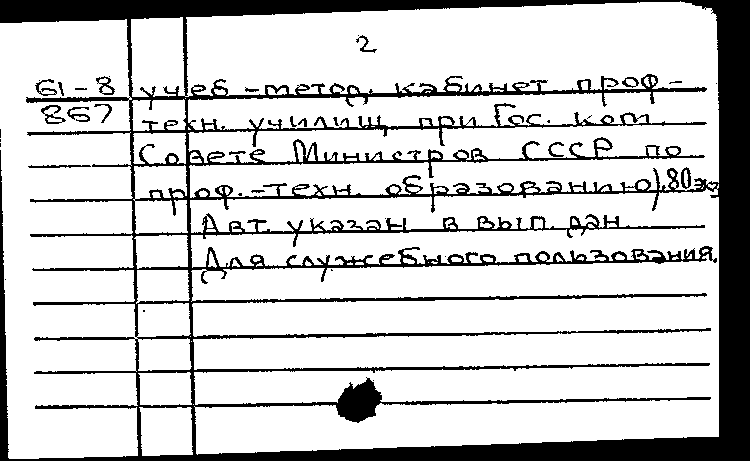 2
61-8 учеб-метод. кабинет проф-
867 техн. училищ при Гос. ком.
Совете Министров СССР по
проф.-техн. образованию). 80 экз
Авт. указан в вып. дан.
Для служебного пользования.